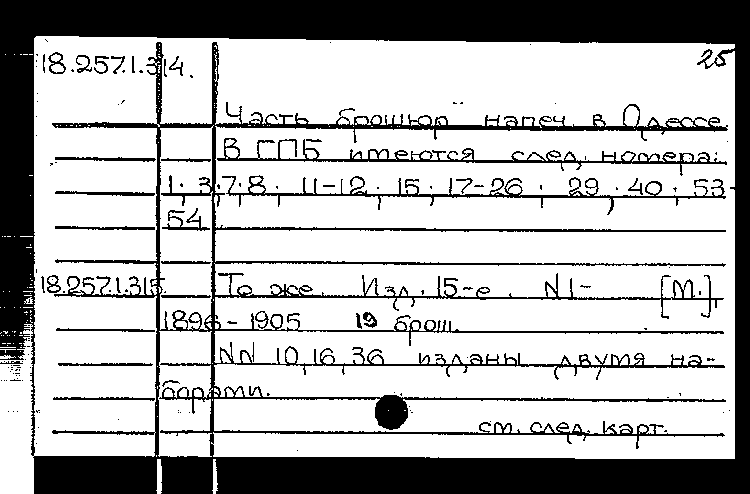 25
18.257.1.314.
Часть брошюр напеч. в Одессе.
В ГПБ имеются след. номера:
1; 3; 7; 8; 11-12; 15; 17-26; 29; 40; 53-
54
18.257.1.315 То же. Изд. 15-е. N 1- [М.],
1896-1905 19 брош.
NN 10, 16, 36 изданы двумя на-
борами.
см. след. карт.